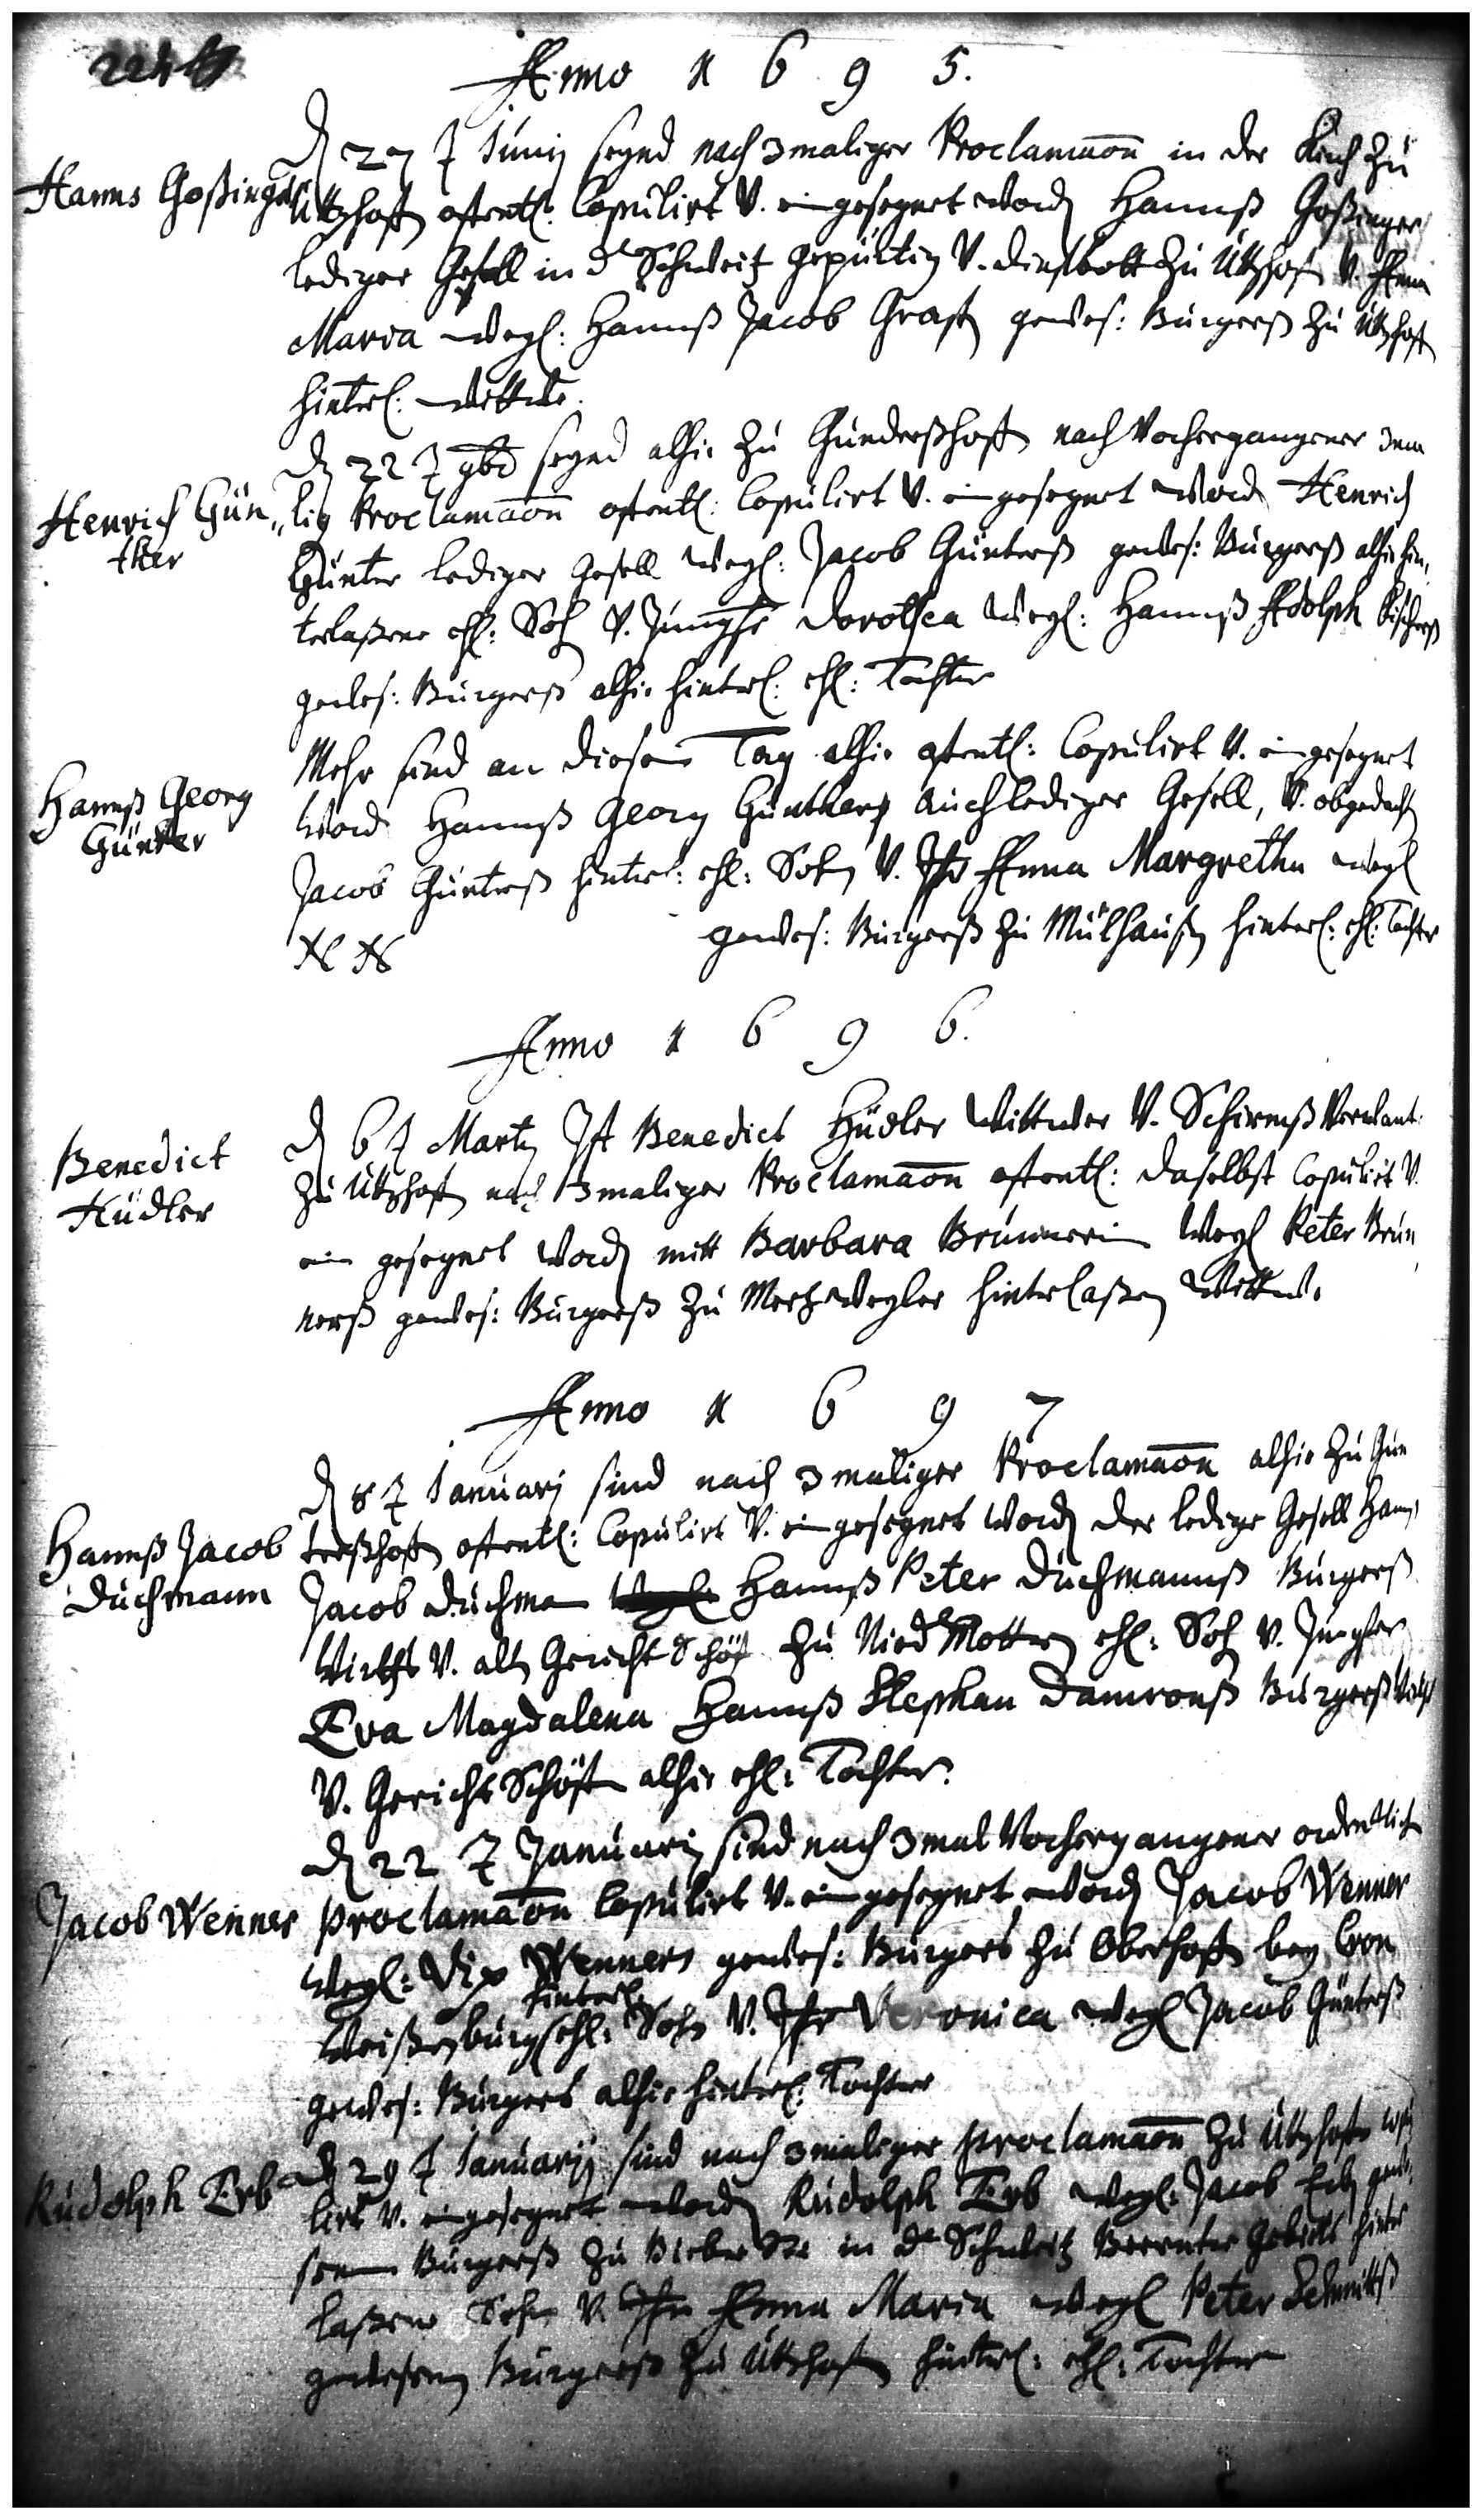 Anno 1 6 9 5.
Hanns Goßinger
D 27 Junij seynd nach 3maliger Proclamaon in der Kirch zu
Utthofen offentl: Copulirt V. eingesegnet worden Hannß Goßinger
lediger Gesell in der Schweitz gepürtig V. dienstbott zu Utthofen V. Anna
Maria weyl: Hannß Jacob Grafen gewes: Burgerß zu Utthofen
hinterl: Wittwe.
Henrich Gün„
ther
D 22 9br seynd alhie zu Gunderßhofen nach Vorhergangener 3ma
lig Proclamaon offentl: Copulirt V. eingesegnet worden Henrich
Günter lediger Gesell weyl: Jacob Günterß gewes: Burgerß alhie hin„
terlaßener ehl: Sohn V. Jungfr Dorothea weyl: Hannß Adolph Fischerß
gewes: Burgerß alhie hinterl: ehl: Tochter
Hannß Georg
Günter
Mehr sind an diesem Tag alhie offentl: Copulirt V. eingesegnet
word Hannß Georg Günther auch lediger Gesell, V. obgedacht
Jacob Günterß hinterl: ehl: Sohn V. Jfr Anna Margretha weyl
N N gewes: Burgerß zu Mülhausen hinterl: ehl: Tochter
Anno 1 6 9 6.
Benedict
Hüdler
D 6 Martij Ist Benedict Hüdler Wittwer V. Schirmß Verwant
zu Utthofen nach 3maliger Proclamaon offentl: daselbst Copulirt V.
ein gesegnet worden mitt Barbara Brunnerin weyl Peter Brun
nerß gewes: Burgerß zu Mertzweyler hinterlaßen Wittwe
Anno 1 6 9 7
Hannß Jacob
Duchmann
D 8 Januarij sind nach 3maliger Proclamaon alhie zu Gun
terßhofen offentl: Copulirt V. eingesegnet worden der ledige Gesell Hanß
Jacob Duchman Hannß Peter Duchmannß Burgerß
Wirthß V. alt Gericht Schöff zu Nieder Mottern ehl: Sohn V. Jungfer
Eva Magdalena Hannß Stephan Damronß Burgerß
V. Gerichts Schöffen alhie ehl: Tochter.
Jacob Wenner
D 22 Januarij sind nach 3mal Vorhergangener ordentlich
Proclamaon Copulirt V. eingesegnet worden Jacob Wenner
weyl: Wenners gewes: Burgers zu Oberhofen bey Cron
hinterl
Weißenburg ehl: Sohn V. Jfr Veronica weyl Jacob Günterß
gewes: Burgers alhie hinterl: Tochter
Rudolph Erb
D 29 Januarij sind nach 3maliger Proclamaon zu Utthofen copu
lirt V. eingesegnet worden Rudolph Erb weyl: Jacob Erb gewe
senen Burgerß zu in der Schweitz Berner Gebiets hinter
laßener Sohn V. Jfr Anna Maria weyl Peter Schmittß
gewesenen Burgerß zu Utthofen hinterl: ehl: Tochter